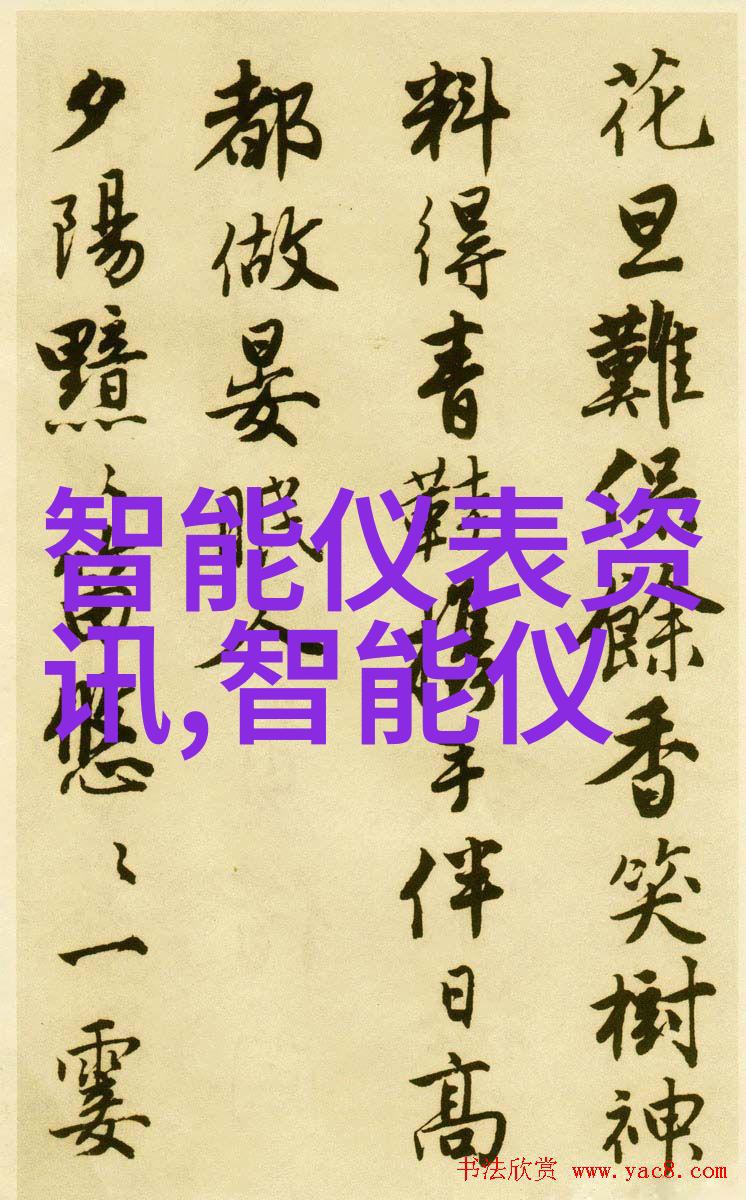 花旦難保餘香笑樹神
料得青鞋攜手伴日高
都做晏眠人
夕陽黯〻笛悠〻一霎
智能仪表资
讯,智能仪
书法欣赏 www.yac8.com